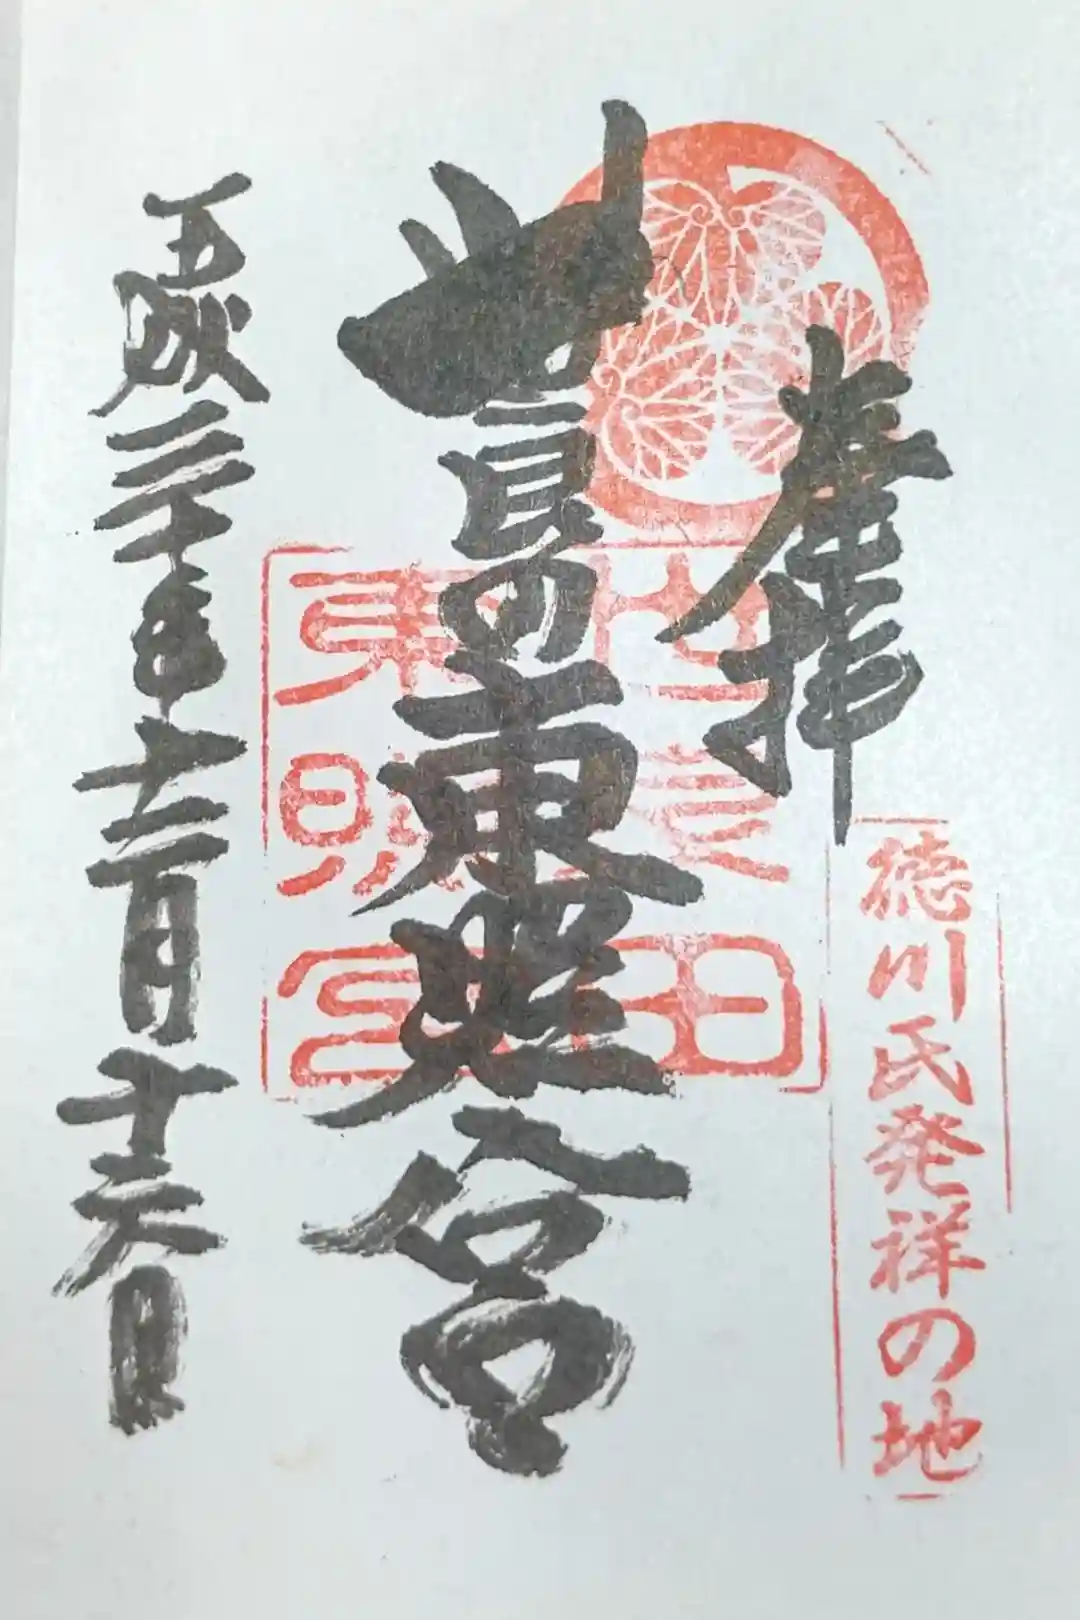 奉拝
徳川氏発祥の地
世良田東照宮
世良田
東照宮
平成三十年十二月十六日